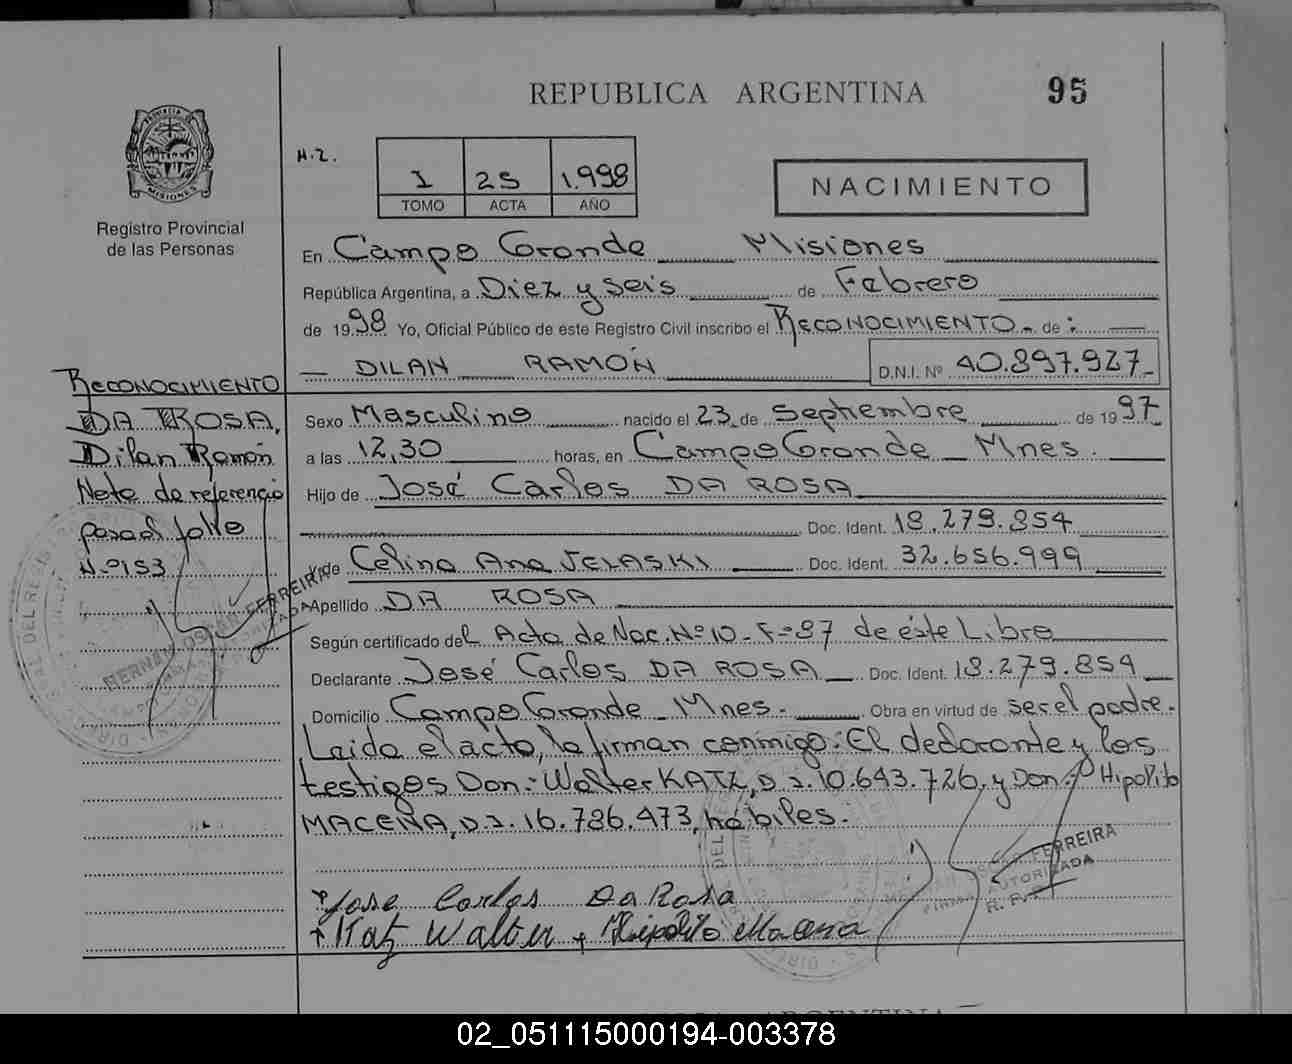 REPUBLICA ARGENTINA
95
PROVINCIA DE
MISIONES
Registro Provincial
de las Personas
H.Z.
I 25 1.998
TOMO ACTA AÑO
NACIMIENTO
En Campo Grande Misiones
República Argentina, a Diez y seis de Febrero
de 1998 Yo, Oficial Público de este Registro Civil inscribo el RECONOCIMIENTO.- de:
DILAN RAMÓN D.N.I. Nº 40.897.927
RECONOCIMIENTO
DA ROSA,
Dilan Ramón
Nota de referencia
pasa al folio
N.º 153
Sexo Masculino nacido el 23 de Septiembre de 1997
a las 12,30 horas, en Campo Grande Mnes.
Hijo de José Carlos DA ROSA
Doc. Ident. 18.279.854
y de Celina Ana JELASKI Doc. Ident. 32.656.999
Apellido DA ROSA
Según certificado del Acta de Nac. Nº 10 - Fº 87 de éste Libro
Declarante José Carlos DA ROSA Doc. Ident. 18.279.854
Domicilio Campo Grande Mnes. Obra en virtud de ser el padre.
Leida el acto, la firman conmigo: El declarante y los
testigos Don: Walter KATZ, D.I. 10.643.726, y Don: Hipolito
MACENA, D.I. 16.786.473, hábiles.
HERNAN OSCAR FERREIRA
FIRMA AUTORIZADA
R. P. P.
Jose Carlos Da Rosa
Katz Walter + Hipolito Macena
02_051115000194-003378